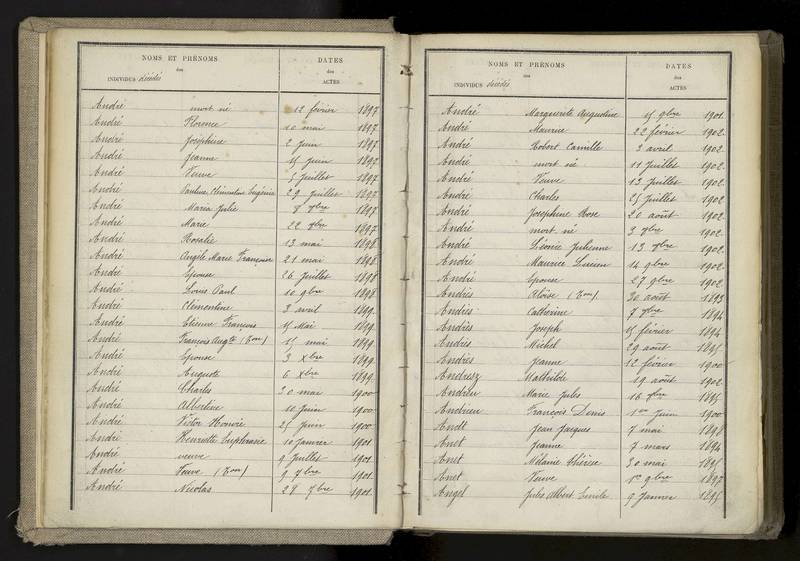 NOMS ET PRÉNOMS
des
INDIVIDUS décédés
DATES
des
ACTES
André mort né 12 février 1897
André Florence 10 mai 1897.
André Joséphine 2 Juin 1897.
André Jeanne 15 Juin 1897.
André Veuve 5 Juillet 1897.
André Pauline, Clémentine Eugénie 29 Juillet 1897.
André Maria Julie 8 7bre 1897.
André Marie 22 7bre 1897.
André Rosalie 13 mai 1898.
André Angèle Marie Françoise 21 mai 1898.
André Epouse 26 Juillet 1898
André Louis Paul 10 9bre 1898.
André Clémentine 3 avril 1899.
André Etienne François 15 Mai 1899.
André François Augte (Tom) 15 mai 1899.
André Epouse 3 Xbre 1899.
André Auguste 6 Xbre 1899.
André Charles 30 mai 1900
André Albertine 10 Juin 1900.
André Victor Honoré 25 Juin 1900
André Henriette Euphrasie 10 Janvier 1901
André veuve 9 Juillet 1901.
André Veuve (Tom) 9 7bre 1901.
André Nicolas 29 7bre 1901.
NOMS ET PRÉNOMS
des
INDIVIDUS décédés
DATES
des
ACTES
André Marguerite Augustine 15 9bre 1901.
André Maurice 22 février 1902.
André Robert Camille 3 avril 1902.
André mort né 11 Juillet 1902.
André Veuve 13 Juillet 1902.
André Charles 25 Juillet 1902.
André Joséphine Rose 20 août 1902.
André mort né 3 9bre 1902.
André Léonie Julienne 13 9bre 1902.
André Maurice Lucien 14 9bre 1902.
André Epouse 27 9bre 1902.
Andrès Aloïse (Tom) 30 août 1893
Andrès Catherine 7 7bre 1894
Andrès Joseph 15 février 1894
Andrès Michel 29 août 1895
Andrès Jeanne 12 février 1900
Andresz Mathilde 19 août 1902
Andrieu Marie Jules 16 7bre 1895
Andrieu François Denis 1er Juin 1900
Andt Jean Jacques 7 mai 1898
Anet Jeanne 7 mars 1894
Anet Mélanie Thérèse 30 mai 1895
Anet Veuve 1er 9bre 1897
Angel Jules Albert Emile 9 Janvier 1895